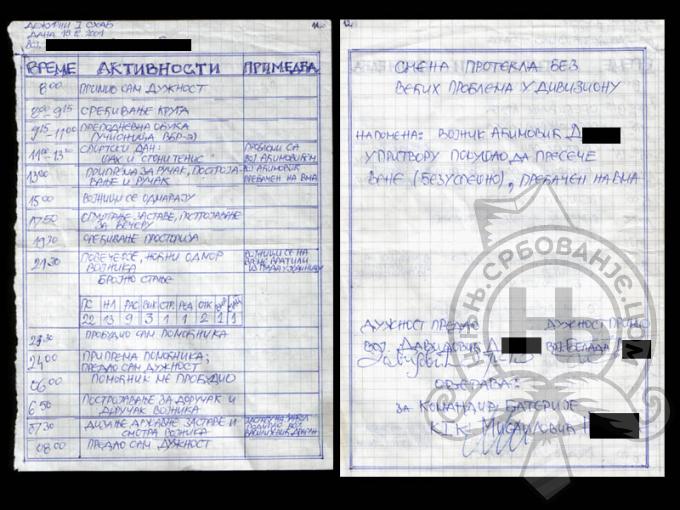 ДЕЖУРНИ I СХАБ
ДАНА
ВРЕМЕ АКТИВНОСТИ ПРИМЕДБА
8 00 ПРИМИО САМ ДУЖНОСТ
СРЕЂИВАЊЕ КРУГА
9 15 - 11 00 ПРЕПОДНЕВНА ОБУКА
(УЧИОНИЦА
СПОРТСКИ ДАН: ПРОБЛЕМИ СА
ШАХ И СТОНИ ТЕНИС ВОЈ. АЋИМОВИЋЕМ
13 00 ПРИПРЕМА ЗА РУЧАК, ПОСТРОЈА- ВОЈ. АЋИМОВИЋ
ВАЊЕ И РУЧАК ПРЕБАЧЕН НА ВМА
15 00 ВОЈНИЦИ СЕ ОДМАРАЈУ
17 50 СПУШТАЊЕ ЗАСТАВЕ, ПОСТРОЈАВАЊЕ
ЗА ВЕЧЕРУ
19 30 СРЕЂИВАЊЕ ПРОСТОРИЈА
21 30 ПОВЕЧЕРЈЕ, НОЋНИ ОДМОР ВОЈНИЦИ СЕ НА
ВОЈНИКА ВРЕМЕ ВРАТИЛИ
БРОЈНО СТАЊЕ
ПС НЛ РАС ВИК СТР. РЕД ОТК
22 13 9 3 1 1 2 1 1
23 30 ПРОБУДИО САМ ПОМОЋНИКА
24 00 ПРИПРЕМА ПОМОЋНИКА;
ПРЕДАО САМ ДУЖНОСТ
06 00 ПОМОЋНИК МЕ ПРОБУДИО
6 50 ПОСТРОЈАВАЊЕ ЗА ДОРУЧАК И
ДОРУЧАК ВОЈНИКА
07 30 ДИЗАЊЕ ДРЖАВНЕ ЗАСТАВЕ И
СМОТРА ВОЈНИКА
08 00 ПРЕДАО САМ ДУЖНОСТ
СМЕНА ПРОТЕКЛА БЕЗ
ВЕЋИХ ПРОБЛЕМА У ДИВИЗИОНУ
НАПОМЕНА: ВОЈНИК АЋИМОВИЋ Д
У ПРИТВОРУ ПОКУШАО ДА ПРЕСЕЧЕ
ВЕНЕ (БЕЗУСПЕШНО), ПРЕБАЧЕН НА ВМА
ДУЖНОСТ ПРЕДАО ДУЖНОСТ ПРИМИО
ВОЈ. ДАВИДОВИЋ Д ВОЈ. БЕЛАДА
ОВЕРАВА:
ЗА КОМАНДИР БАТЕРИЈЕ
КТК МИХАИЛОВИЋ
СРБОВАЊЕ.ЦОМ